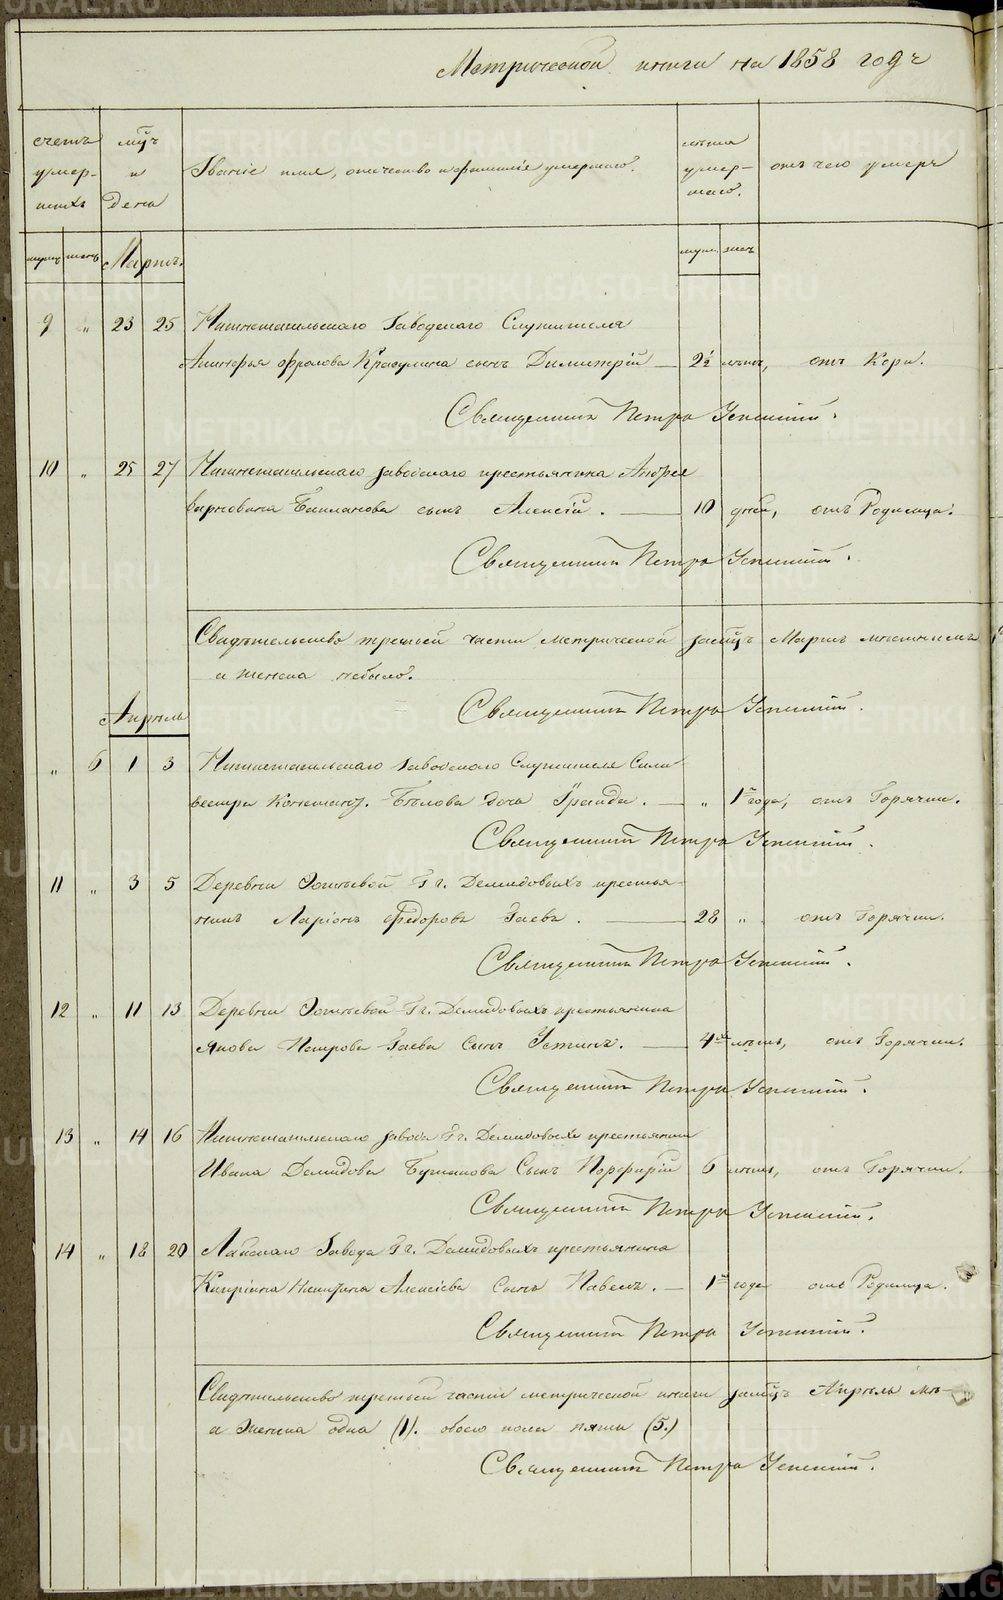 Метрической книги на 1858 годъ
счетъ умер- шихъ
мцъ и день
Званіе имя, отчество и фамилія умершаго.
лѣта умер- шаго.
отъ чего умеръ
муж. жен. Мартъ. муж. жен.
9 " 23 25 Нижнетагильскаго Заводскаго Служителя
Фролова сынъ Димитрій — 2½ лѣтъ, отъ Кори.
Священникъ Петръ Успенскій.
10 " 25 27 Нижнетагильскаго заводскаго крестьянина Андрея
сынъ Алексій. — 10 дней, отъ Родимца.
Священникъ Петръ Успенскій.
Свидѣтельство третьей части метрической за мцъ Мартъ
и женска небыло.
Священникъ Петръ Успенскій.
Апрѣль
" 6 1 3 Нижнетагильскаго Заводскаго Служителя Силь
вестра Констант. Бѣлова дочь Ираида. — " 1 года, отъ Горячки.
Священникъ Петръ Успенскій.
11 " 3 5 Деревни Гг. Демидовыхъ крестья-
нинъ Ларіонъ Федоровъ Гаевъ. — 28 " отъ Горячки.
Священникъ Петръ Успенскій.
12 " 11 13 Деревни Гг. Демидовыхъ крестьянина
Якова Петрова Гаева Сынъ Устинъ. — 4хъ лѣтъ, отъ Горячки.
Священникъ Петръ Успенскій.
13 " 14 16 Нижнетагильскаго завода Гг. Демидовыхъ крестьянина
Ивана Демидова Сынъ Порфирій 6 лѣтъ, отъ Горячки.
Священникъ Петръ Успенскій.
14 " 18 20 Лайскаго Завода Гг. Демидовыхъ крестьянина
Кипріяна Никитина Алексѣева Сынъ Павелъ. — 1 года отъ Родимца.
Священникъ Петръ Успенскій.
Свидѣтельство третьей части метрической книги за мцъ Апрѣль
и Женска одна (1). обоего пола пять (5.)
Священникъ Петръ Успенскій.
METRIKI.GASO-URAL.RU